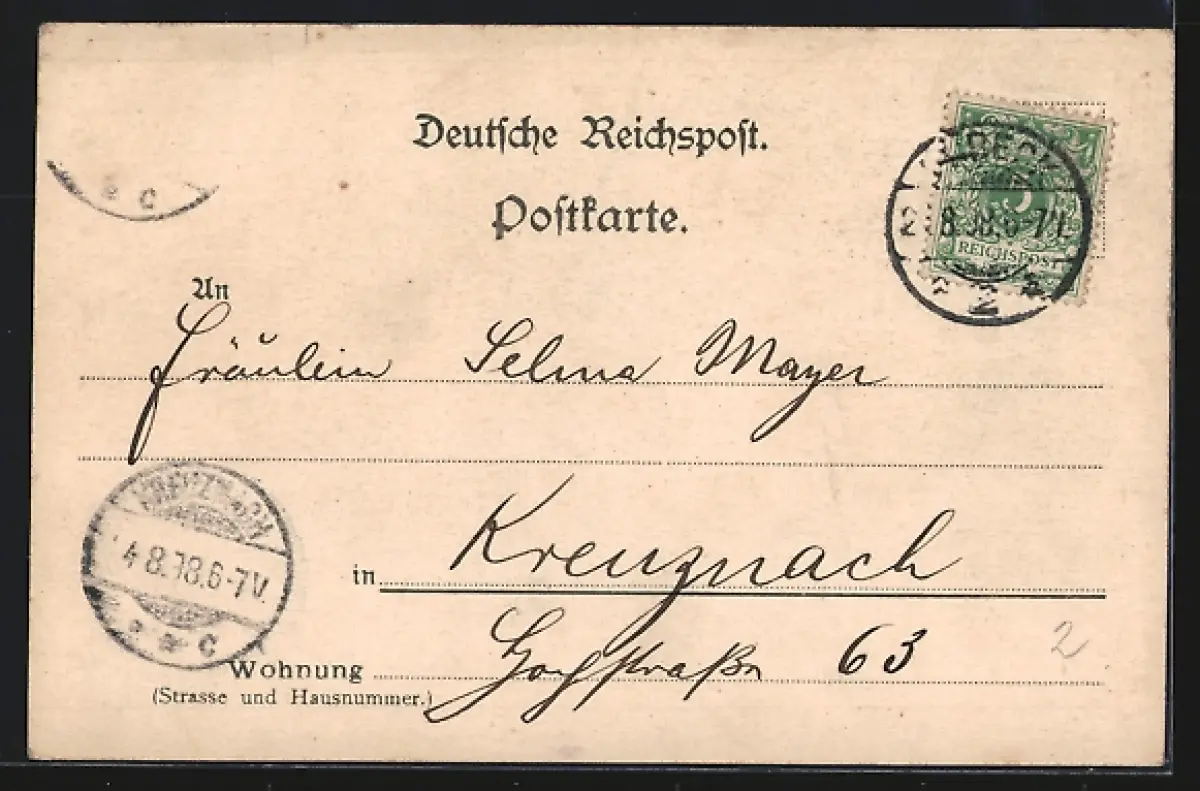 Deutsche Reichspost.
Postkarte.
REICHSPOST
8.98.6-7V.
2
An
Fräulein Selma Mayer
KREUZNACH
4.8.98.6-7V.
c
in Kreuznach
Wohnung Hochstraße 63
(Strasse und Hausnummer.)
2
c